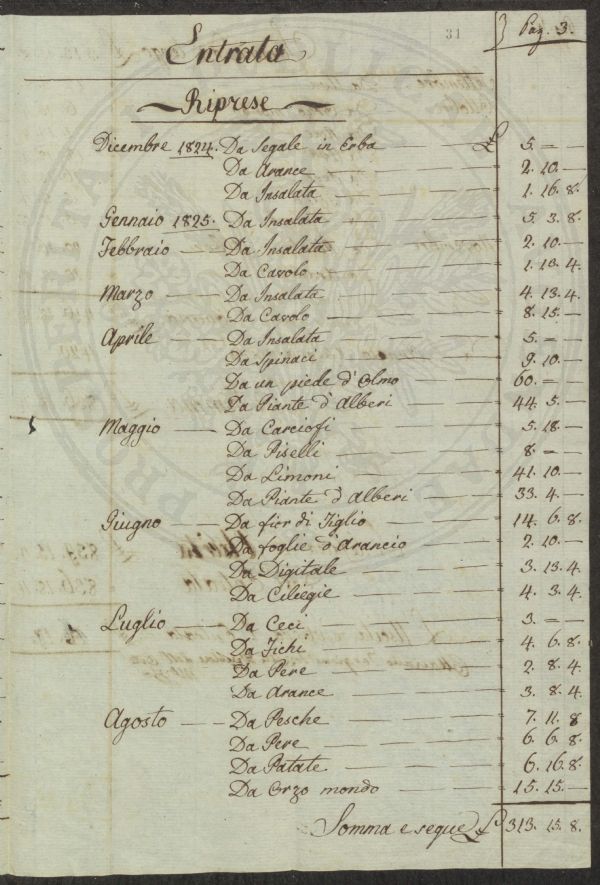 31
Pag. 3.
Entrata
Riprese
Dicembre 1824. Da Segale in Erba — £ 5. = —
Da Arance — 2. 10. —
Da Insalata — 1. 16. 8.
Gennaio 1825. Da Insalata — 5. 3. 8.
Febbraio — Da Insalata — 2. 10. —
Da Cavolo — 1. 13. 4.
Marzo — Da Insalata — 4. 13. 4.
Da Cavolo — 8. 15. —
Aprile — Da Insalata — 5. = —
Da Spinaci — 9. 10. —
Da un piede d'Olmo — 60. = —
Da Piante d'Alberi — 44. 5. —
Maggio — Da Carciofi — 5. 18. —
Da Piselli — 8. = —
Da Limoni — 41. 10. —
Da Piante d'Alberi — 33. 4. —
Giugno — Da fior di Tiglio — 14. 6. 8.
Da foglie d'Arancio — 2. 10. —
Da Digitale — 3. 13. 4.
Da Ciliegie — 4. 3. 4.
Luglio — Da Ceci — 3. = —
Da Fichi — 4. 6. 8.
Da Pere — 2. 8. 4.
Da Arance — 3. 8. 4.
Agosto — Da Pesche — 7. 11. 8
Da Pere — 6. 6. 8.
Da Patate — 6. 16. 8.
Da Orzo mondo — 15. 15. —
Somma e segue £ 313. 15. 8.